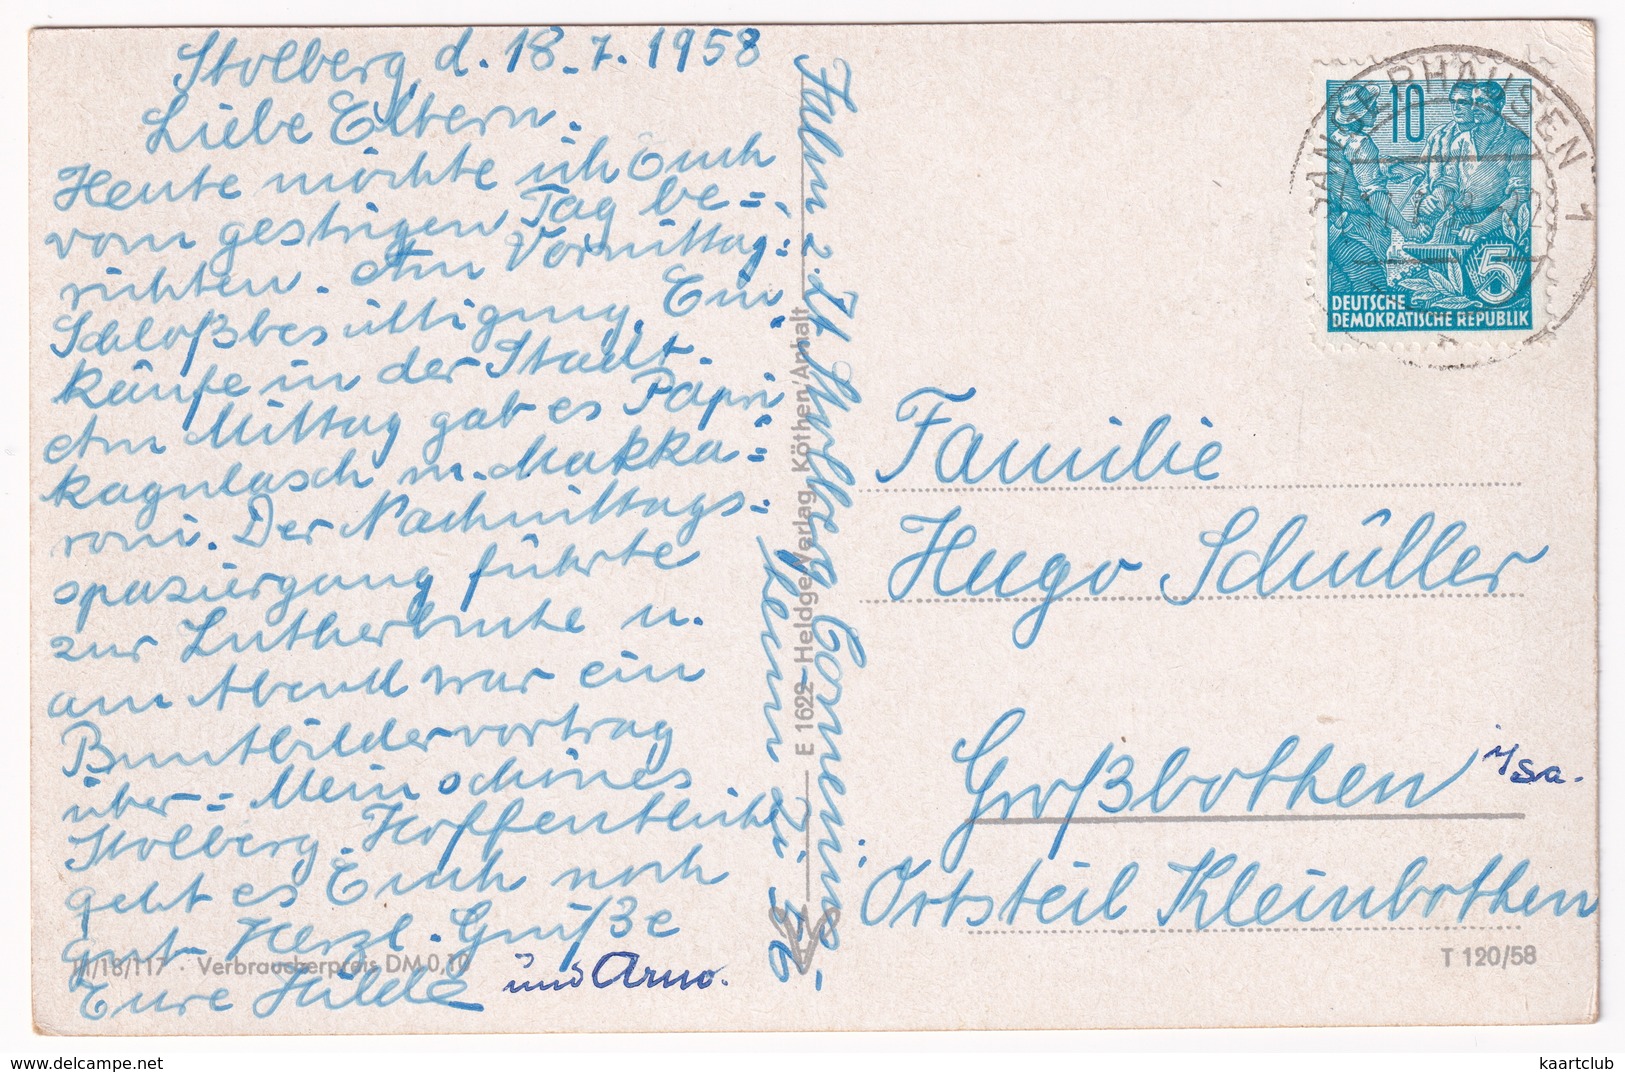 Stolberg, d. 18.7.1958
Liebe Eltern.
Heute möchte ich Euch
vom gestrigen Tag be=
richten. Am Vormittag:
Schloßbesichtigung, Ein
käufe in der Stadt.
Am Mittag gab es Papri
kagulasch m. Makka=
roni. Der Nachmittags=
spaziergang führte
zur Lutherbuche u.
am Abend war ein
Buntbildervortrag
über = Mein schönes
Stolberg. Hoffentlich
geht es Euch noch
gut. Herzl. Grüße
Eure Hilde und Arno.
III/18/117 · Verbraucherpreis DM 0,10
E 1622 Heldge-Verlag, Köthen/Anhalt
z. Zt. Stolberg
10
5
DEUTSCHE
DEMOKRATISCHE REPUBLIK
SANGERHAUSEN 1
Familie
Hugo Schüller
Großbothen i/Sa.
Ortsteil Kleinbothen
T 120/58
kaartclub